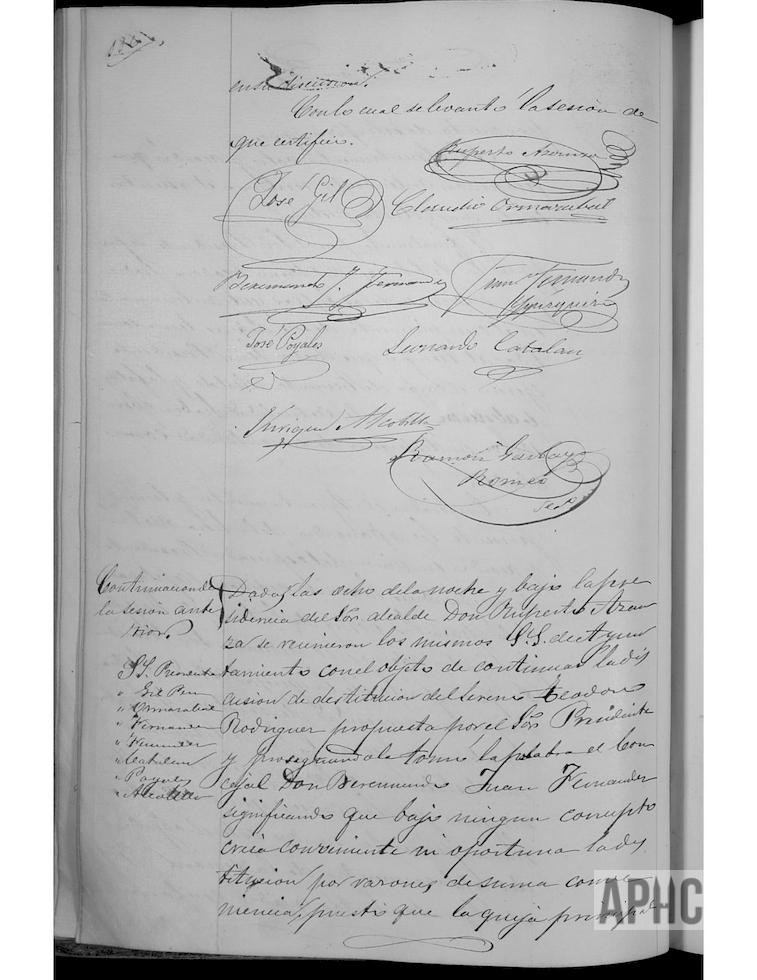 en su discusion.
Con lo cual se levantó la sesion de
que certifico.
Ruperto Azanza
José Gil
Claudio Ormazabal
Beremundo J. Fernandez
Juan Fernandez
José Poyales
Leonardo Catalan
Enrique Alcotilla
Ramón Garbayo
Romeo
Continuacion de
la sesión ante
rior.
SS. Presente
" Gil Pen
" Ormazabal
" Fernandez
" Fernandez
" Catalan
" Poyales
" Alcotilla
Dadas las ocho de la noche y bajo la pre
sidencia del Sor. alcalde Don Ruperto Azan
za se reunieron los mismos S.S. de Ayun
tamiento con el objeto de continuar la dis
cusion de destitucion del Sereno Teodoro
Rodriguez propuesta por el Sor. Presidente
y prosiguiendola tomó la palabra el Con
cejal Don Beremundo Juan Fernandez
significando que bajo ningun concepto
creia conveniente ni oportuna la des
titucion por razones de suma conve
niencia, puesto que la queja principal
APHC